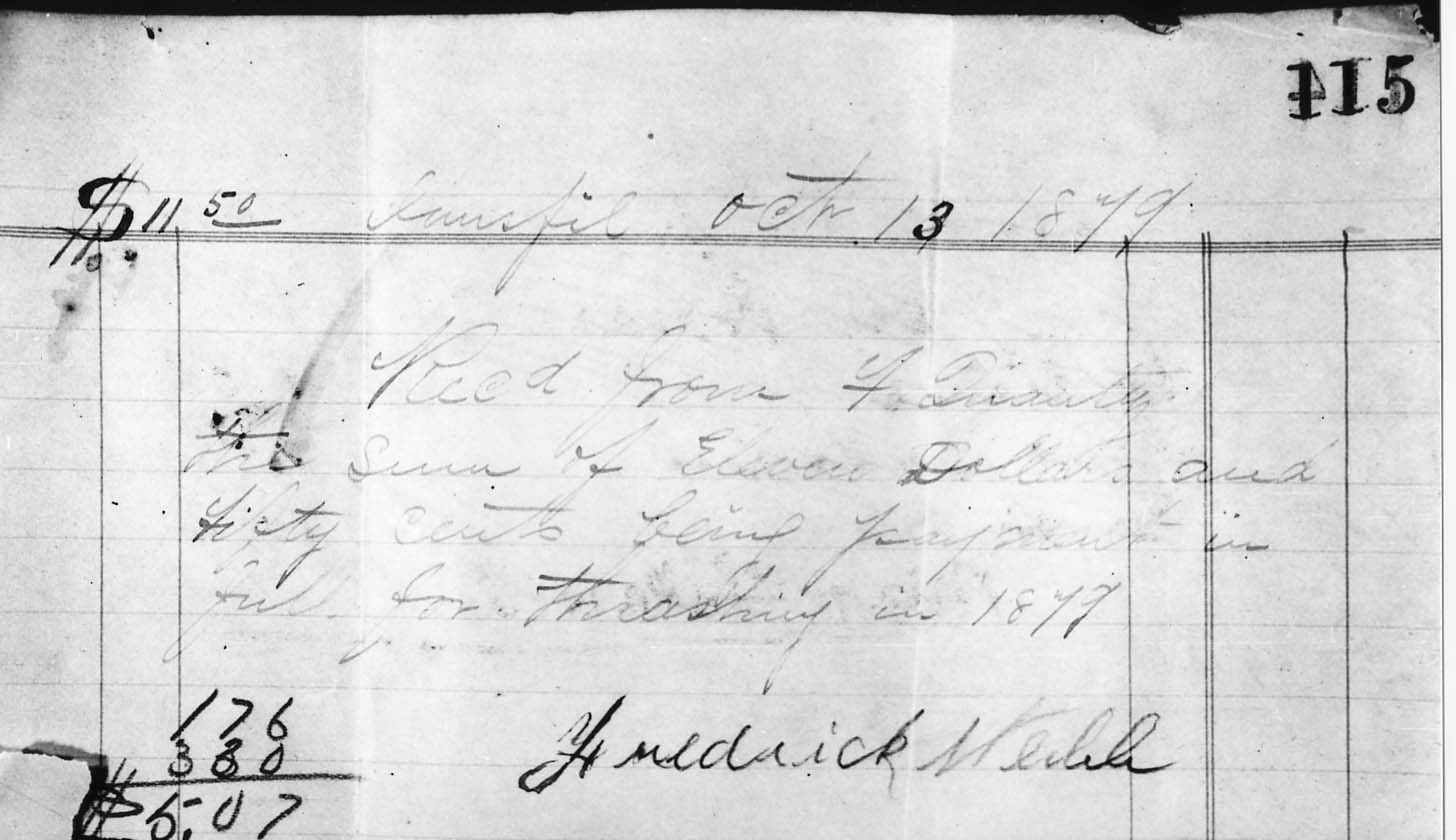 115
$11 50 Oct. 13 1879
Recd from F.
the Sum of Eleven Dollars and
fifty cents being payment in
full for thrashing in 1879
176
330
Fredrick Webb
$5.07